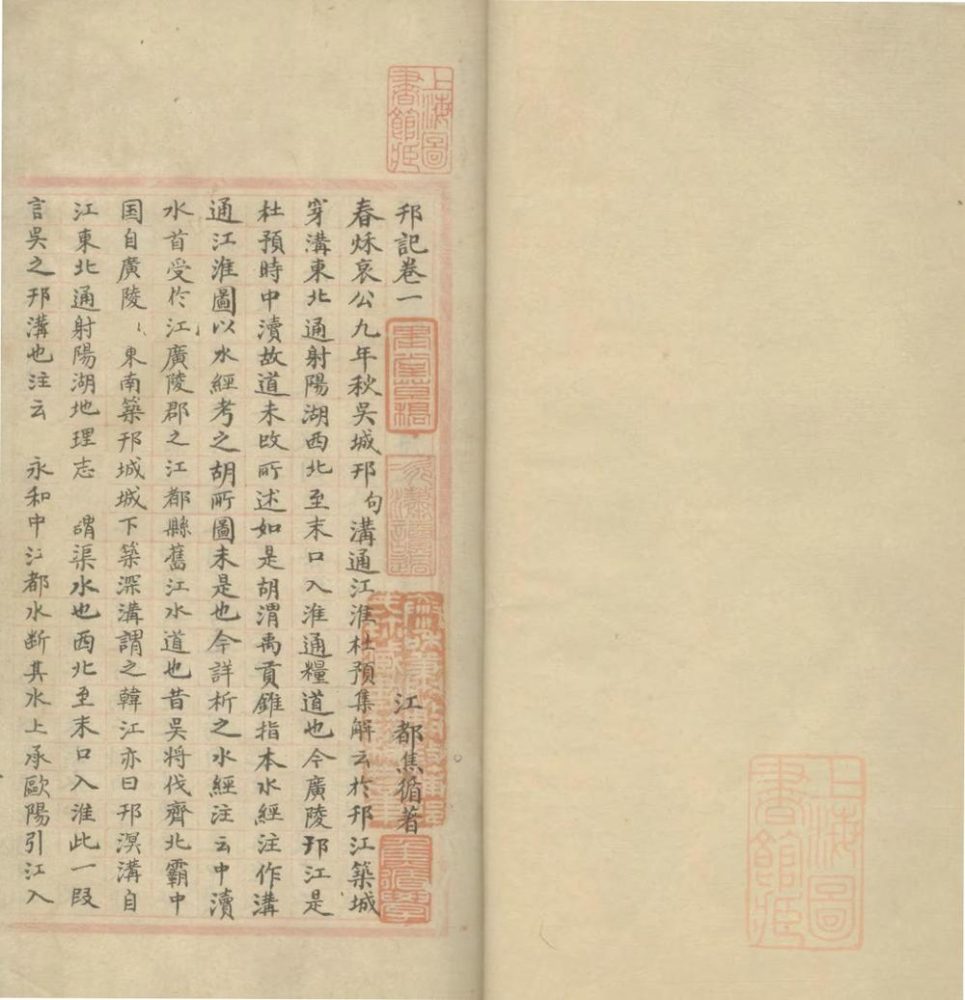 邗記卷一
江都焦循著
春秌哀公九年秋吳城邗句溝通江淮杜預集解云於邗江築城
穿溝東北通射陽湖西北至末口入淮通糧道也今廣陵邗江是
杜預時中瀆故道未改所述如是胡渭禹貢錐指本水經注作溝
通江淮圖以水經考之胡所圖未是也今詳析之水經注云中瀆
水首受於江廣陵郡之江都縣舊江水道也昔吳將伐齊北霸中
国自廣陵、東南築邗城城下築深溝謂之韓江亦曰邗溟溝自
江東北通射陽湖地理志 謂渠水也西北至末口入淮此一段
言吳之邗溝也注云 永和中江都水斷其水上承歐陽引江入
上海圖書館臧
焦循學
上海圖書館臧